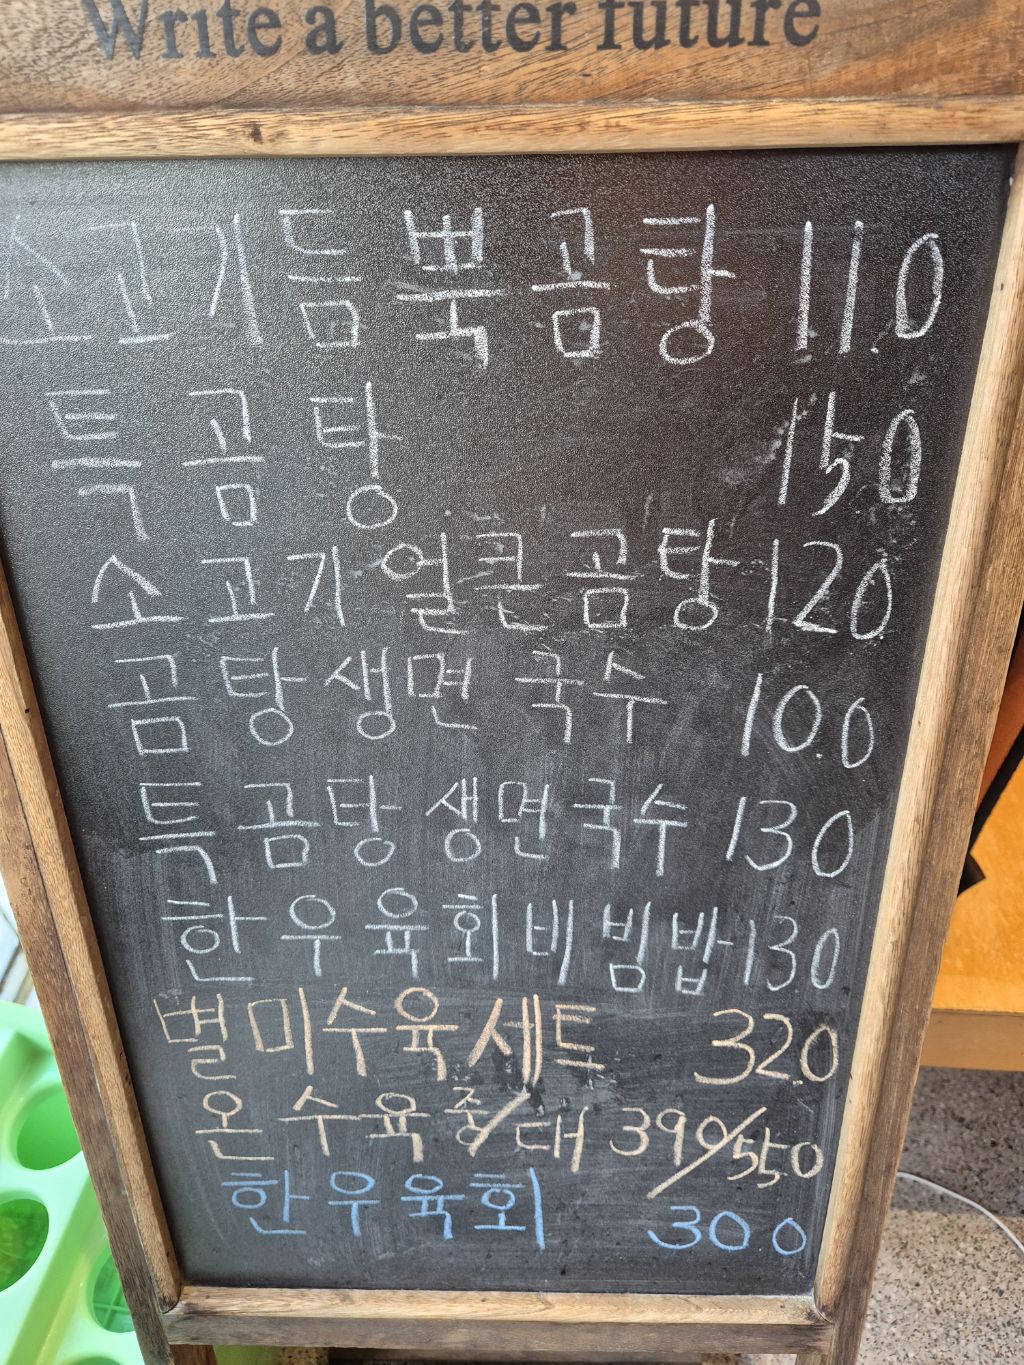 Write a better future
소고기듬뿍곰탕 11.0
특곰탕 15.0
소고기얼큰곰탕 12.0
곰탕생면 국수 10.0
특곰탕 생면국수 13.0
한우육회비빔밥 13.0
별미수육세트 32.0
온수육중/대 39.0/55.0
한우육회 30.0